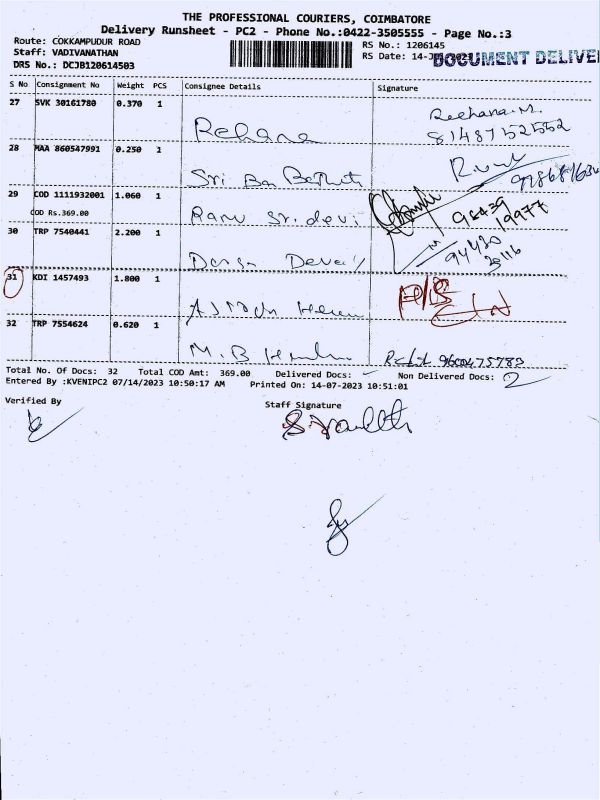 THE PROFESSIONAL COURIERS, COIMBATORE
Delivery Runsheet - PC2 - Phone No.:0422-3505555 - Page No.:3
Route: COKKAMPUDUR ROAD
RS No.: 1206145
Staff: VADIVANATHAN
RS Date: 14-J
DOCUMENT DELIVE
DRS No.: DCJB120614503
S No Consignment No Weight PCS Consignee Details Signature
27 SVK 30161780 0.370 1 Rehana Reehana.M. 8148752552
28 MAA 860547991 0.250 1 Sri
29 COD 1111932001 1.060 1 Ranu Sridevi 98439 19977
COD Rs.369.00
30 TRP 7540441 2.200 1 Durga Devi
31 KDI 1457493 1.800 1
32 TRP 7554624 0.620 1 M.B 9600475783
Total No. Of Docs: 32 Total COD Amt: 369.00 Delivered Docs: Non Delivered Docs: 2
Entered By :KVENIPC2 07/14/2023 10:50:17 AM Printed On: 14-07-2023 10:51:01
Verified By Staff Signature